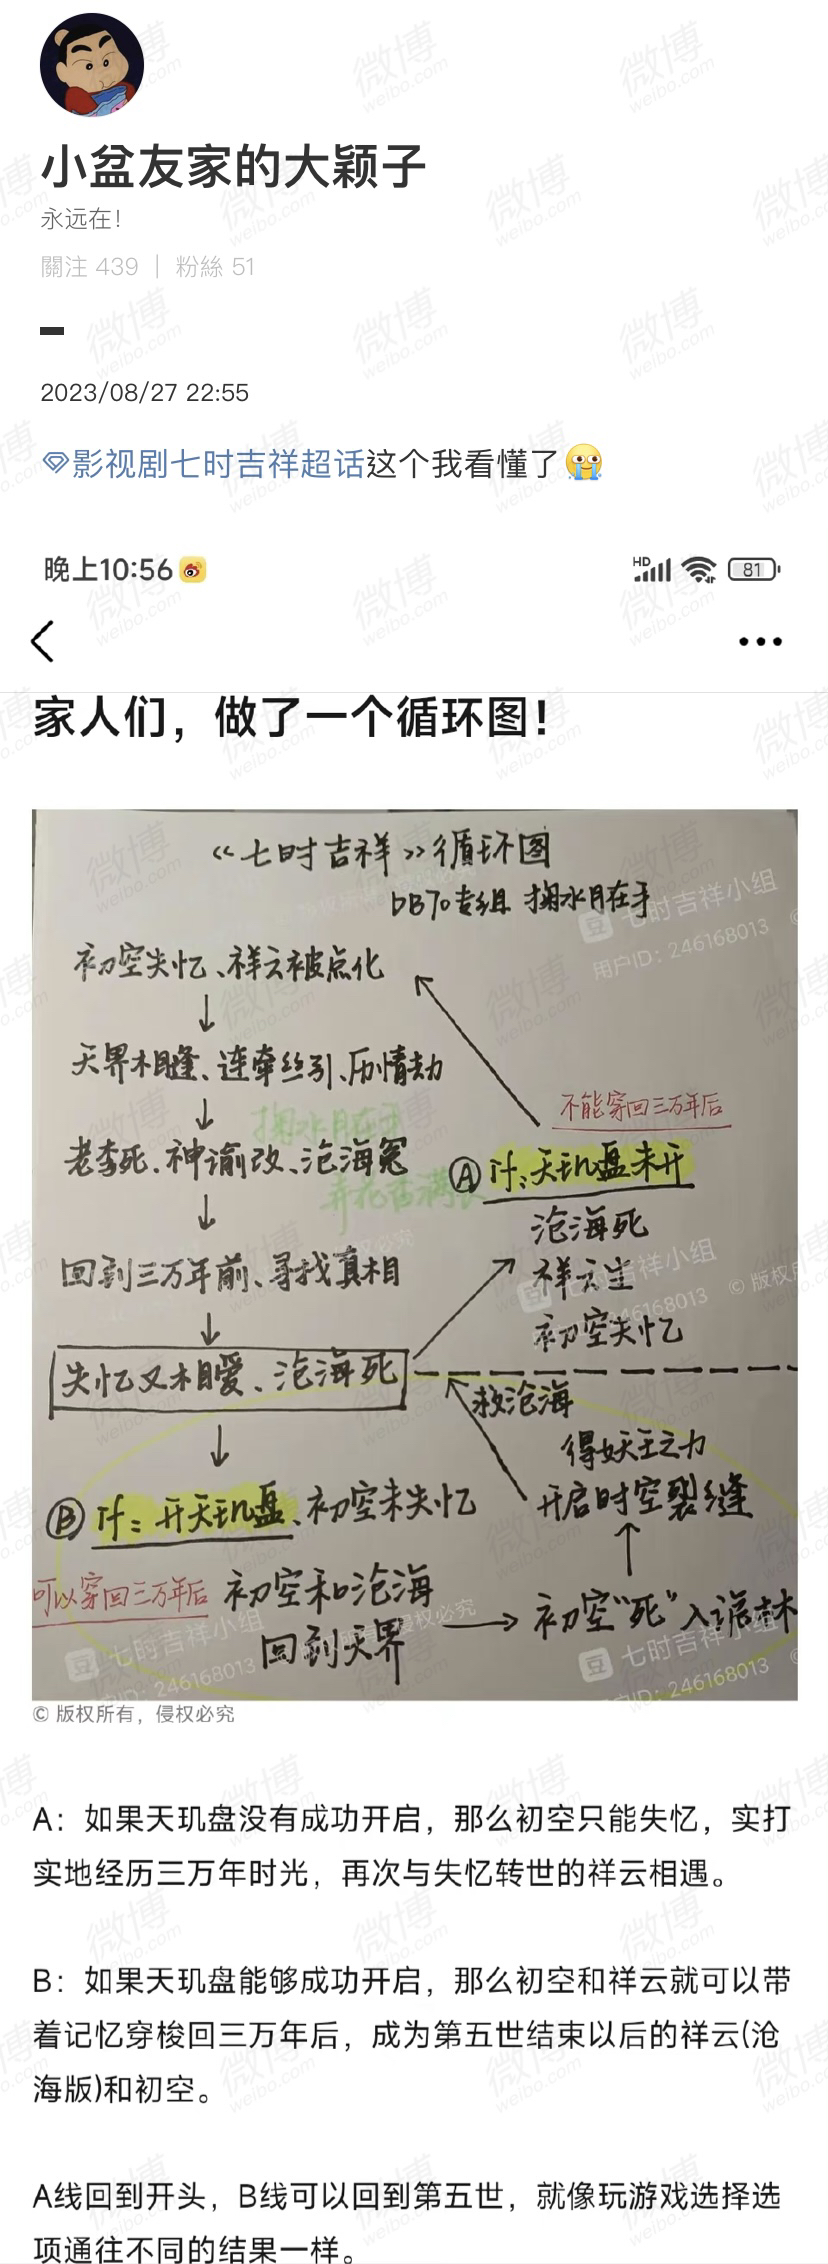 小盆友家的大颖子
永远在！
關注 439 | 粉絲 51
2023/08/27 22:55
影视剧七时吉祥超话这个我看懂了
晚上10:56
HD
81
家人们，做了一个循环图！
《七时吉祥》循环图
DB70专组 掬水月在手
初空失忆、祥云被点化
天界相逢、连牵丝引、历情劫
老李死、神谕改、沧海冤
回到三万年前、寻找真相
失忆又相爱、沧海死
不能穿回三万年后
Ⓐ if：天玑盘未开
沧海死
祥云生
初空失忆
救沧海
得妖王之力
开启时空裂缝
初空“死”入诡林
Ⓑ if：开天玑盘、初空未失忆
可以穿回三万年后
初空和沧海
回到天界
掬水月在手
弄花香满衣
七时吉祥小组
用户ID：246168013
© 版权所有，侵权必究
A：如果天玑盘没有成功开启，那么初空只能失忆，实打
实地经历三万年时光，再次与失忆转世的祥云相遇。
B：如果天玑盘能够成功开启，那么初空和祥云就可以带
着记忆穿梭回三万年后，成为第五世结束以后的祥云(沧
海版)和初空。
A线回到开头，B线可以回到第五世，就像玩游戏选择选
项通往不同的结果一样。
微博
weibo.com